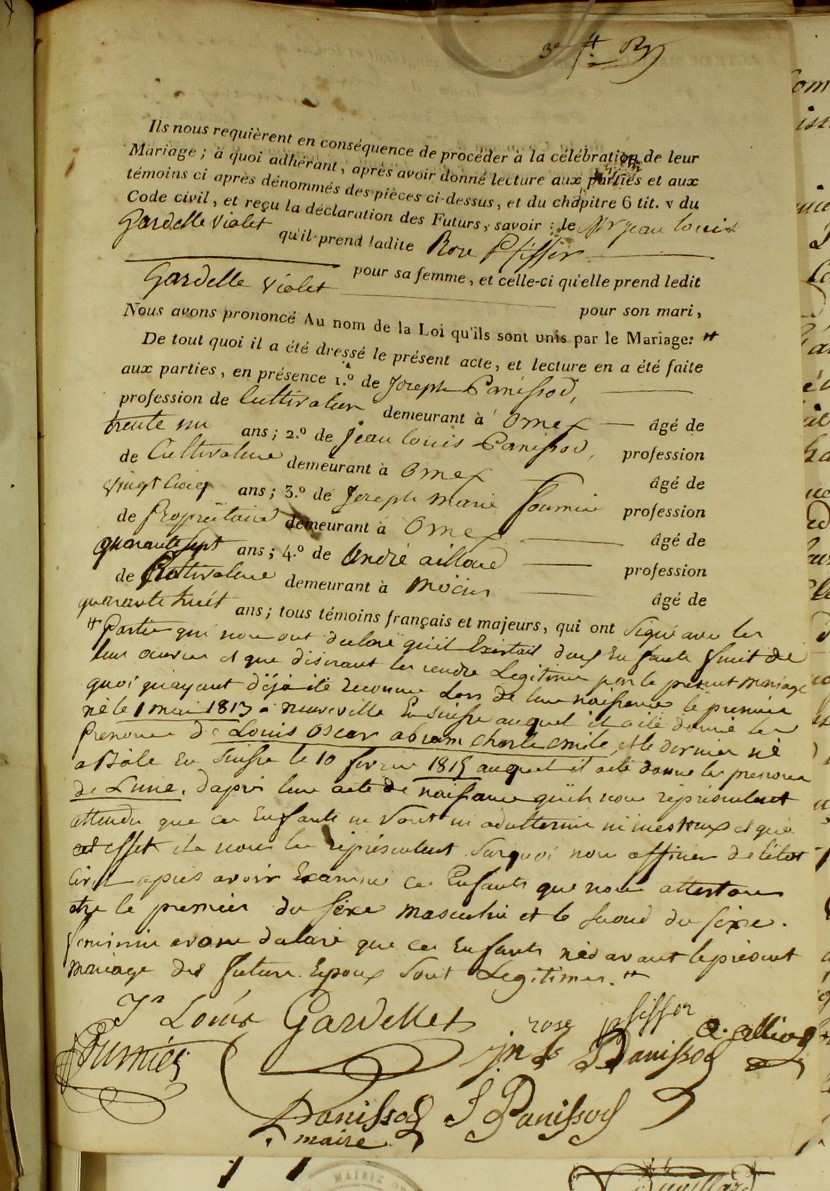 Ils nous requièrent en conséquence de procéder à la célébration de leur
Mariage ; à quoi adhérant, après avoir donné lecture aux parties et aux
témoins ci après dénommés des pièces ci-dessus, et du chapitre 6 tit. v du
Code civil, et reçu la déclaration des Futurs, savoir : le Sr jean louis
Gardelle violet qu'il prend ladite Rose Pfiffer
Gardelle violet pour sa femme, et celle-ci qu'elle prend ledit
pour son mari,
Nous avons prononcé Au nom de la Loi qu'ils sont unis par le Mariage: #
De tout quoi il a été dressé le présent acte, et lecture en a été faite
aux parties, en présence 1.º de Joseph Panissod,
profession de Cultivateur demeurant à Ornex âgé de
trente un ans ; 2.º de jean louis Panissod, profession
de Cultivateur demeurant à Ornex âgé de
vingt cinq ans ; 3.º de Joseph marie fournier profession
de Propriétaire demeurant à Ornex âgé de
quarante sept ans ; 4.º de André alliod profession
de Cultivateur demeurant à Moëns âgé de
quarante huit ans ; tous témoins français et majeurs, qui ont Signé avec les
# Parties qui nous ont déclaré qu'il Existait deux Enfants fruit de
leur et que désirant les rendre Legitimes par le present mariage
quoi qu'ayant déjà été reconnu Lors de leur naissance le premier
né le 1 mai 1813 à neuveville En Suisse auquel il a été donné les
Prenoms de Louis Oscar abram Charle emile, et le dernier né
a Bâle En Suisse le 10 fevrier 1815 auquel il a été donné les prenoms
de d'après leur acte de naissance qu'ils nous représentent
attendu que ces Enfants ne Sont ni adulterins ni et que
cet effet ils nous les représentent Surquoi nous officier de l'état
Civil après avoir Examiné ces Enfants que nous attestons
être le premier du Sexe masculin et le Second du Sexe
feminin avons declaré que ces Enfants nés avant le présent
mariage des futurs Epoux Sont Legitimes. #
Jn Louis Gardellet rose pfiffer a. alliod
fournier jn Ls Panissod
Panissod J Panissod
maire